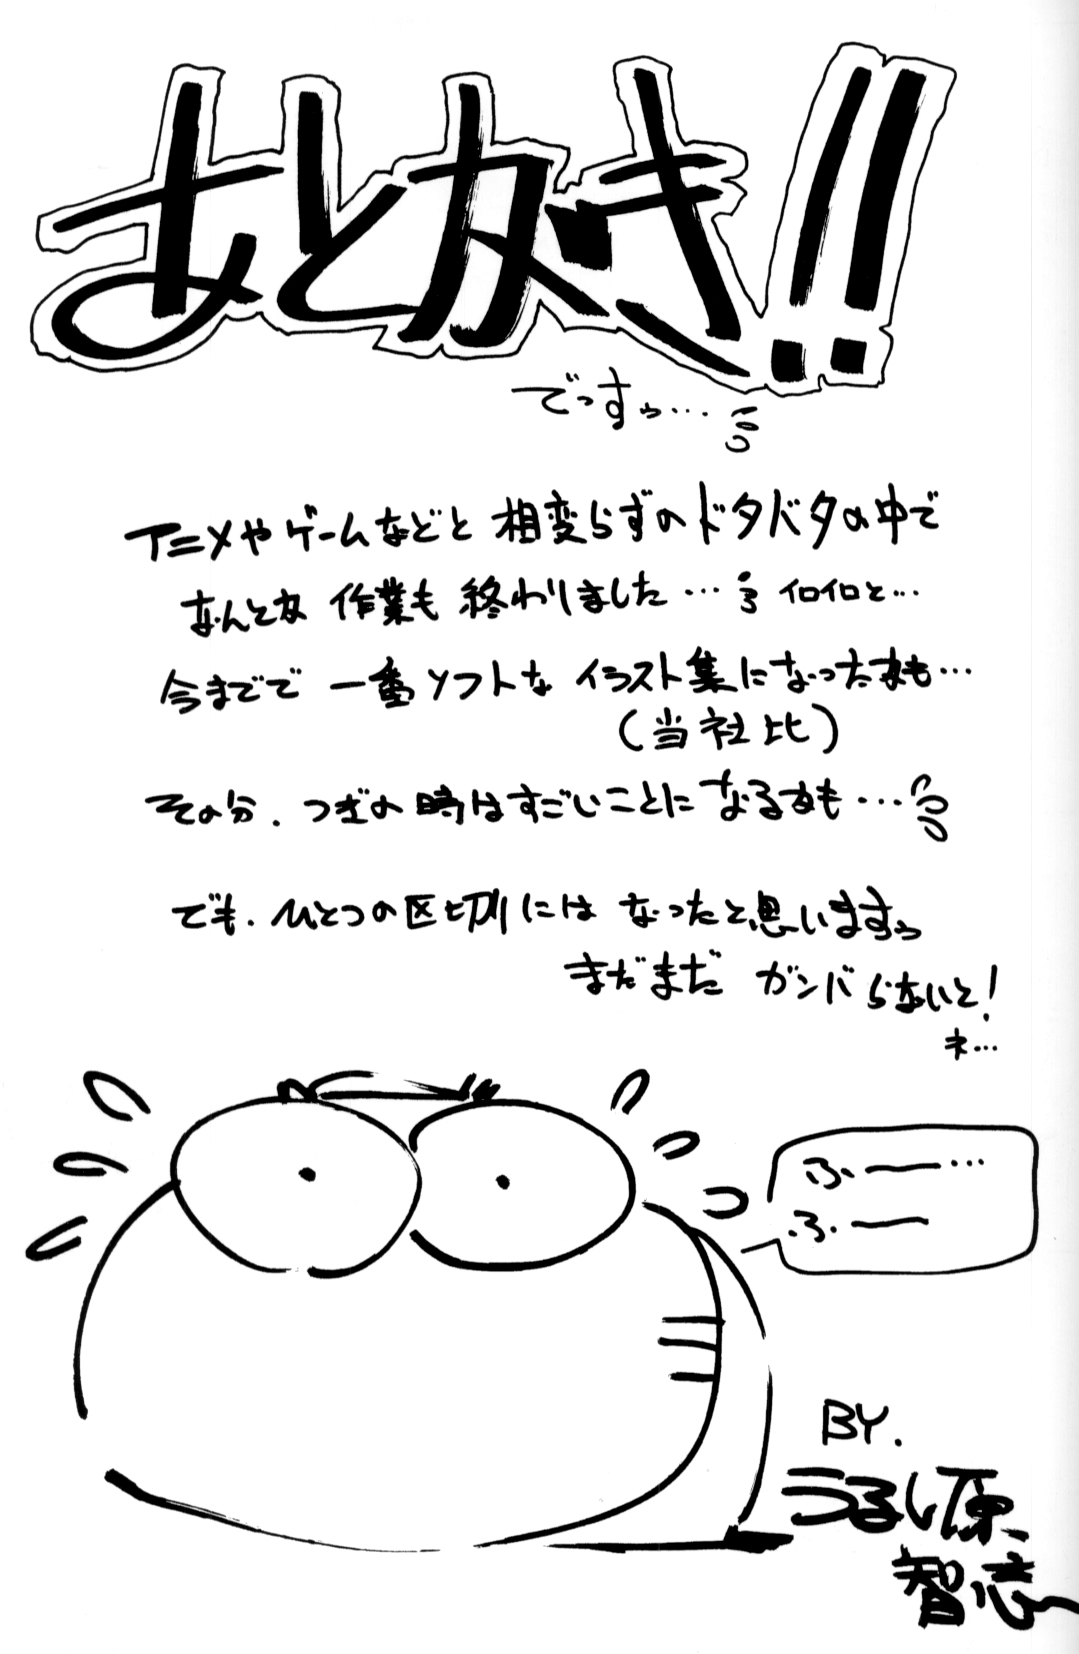 あとがき!!
でっすぅ…
アニメやゲームなどと相変らずのドタバタの中で
なんとか作業も終わりました…イロイロと…
今までで一番ソフトなイラスト集になったかも…
(当社比)
その分、つぎの時はすごいことになるかも…
でも、ひとつの区切りにはなったと思いますぅ
まだまだガンバらないと!
ネ…
ふー…
ふー
BY.
うるし原
智志